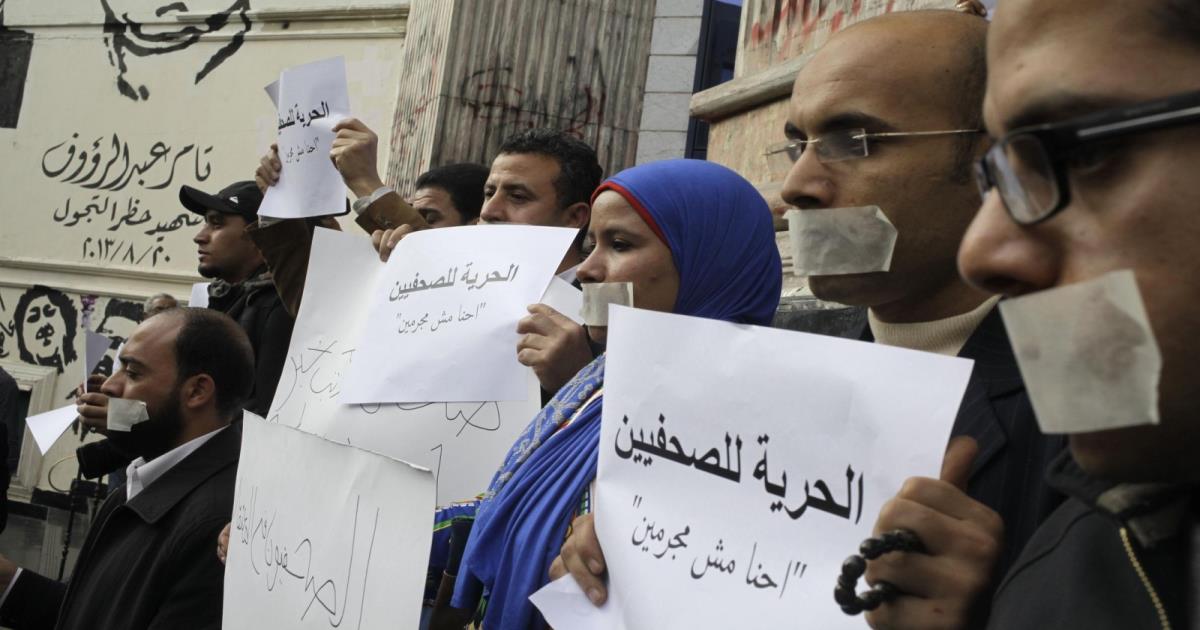 تامر عبد الرؤوف
شهيد حظر التجول
٢٠١٣/٨/٢٠
الحرية للصحفيين
"احنا مش مجرمين"
الحرية للصحفيين
"احنا مش مجرمين"
الحرية للصحفيين
"احنا مش مجرمين"
الصحفيون